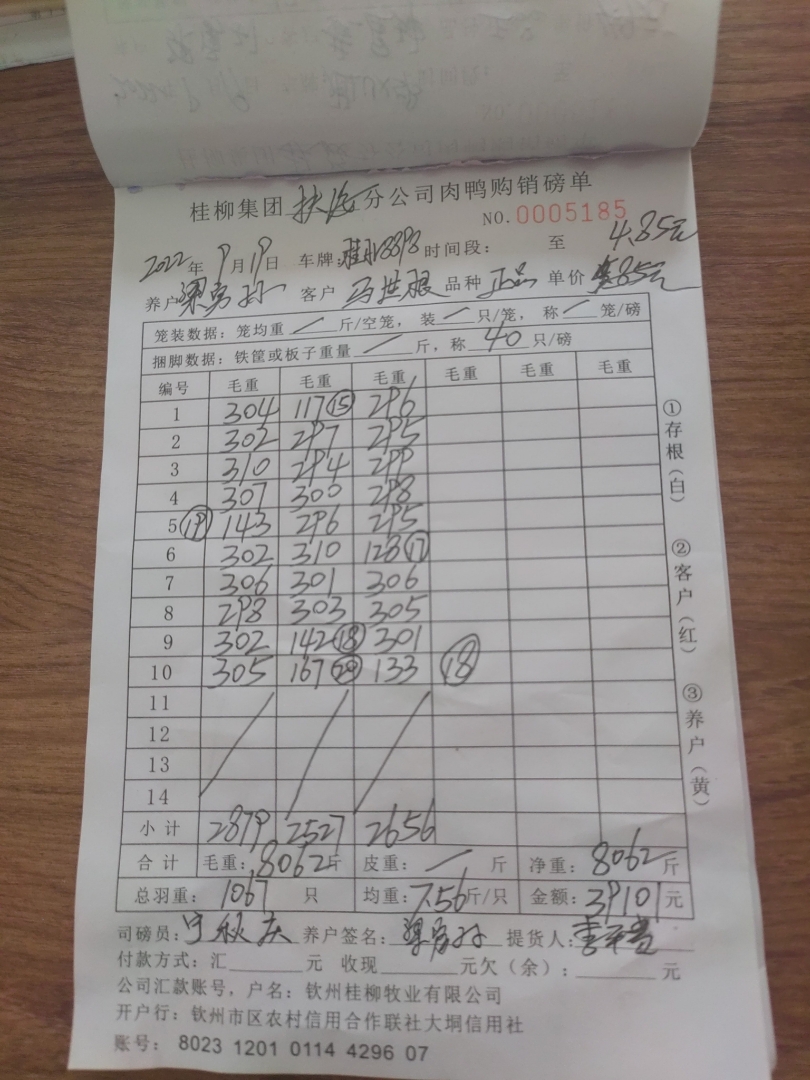 桂柳集团 扶 分公司肉鸭购销磅单
NO.0005185
4.85元
2022年9月19日 车牌: 时间段: 至
养户 客户 马世 品种 正品 单价 .85元
笼装数据: 笼均重 / 斤/空笼, 装 / 只/笼, 称 / 笼/磅
捆脚数据: 铁筐或板子重量 / 斤, 称 40 只/磅
编号 毛重 毛重 毛重 毛重 毛重 毛重
1 304 117⑮ 296
2 302 297 295
3 310 294 299
4 307 300 298
5 ⑲ 143 296 295
6 302 310 128⑰
7 306 301 306
8 298 303 305
9 302 142⑱ 301
10 305 167⑳ 133 ⑱
11
12
13
14
小计 2879 2527 2656
合计 毛重: 8062斤 皮重: / 斤 净重: 8062斤
总羽重: 1067 只 均重: 7.56斤/只 金额: 39101元
司磅员: 宁秋庆 养户签名: 提货人: 李
付款方式: 汇 元 收现 元欠(余): 元
公司汇款账号, 户名: 钦州桂柳牧业有限公司
开户行: 钦州市区农村信用合作联社大垌信用社
账号: 8023 1201 0114 4296 07
①存根(白)
②客户(红)
③养户(黄)